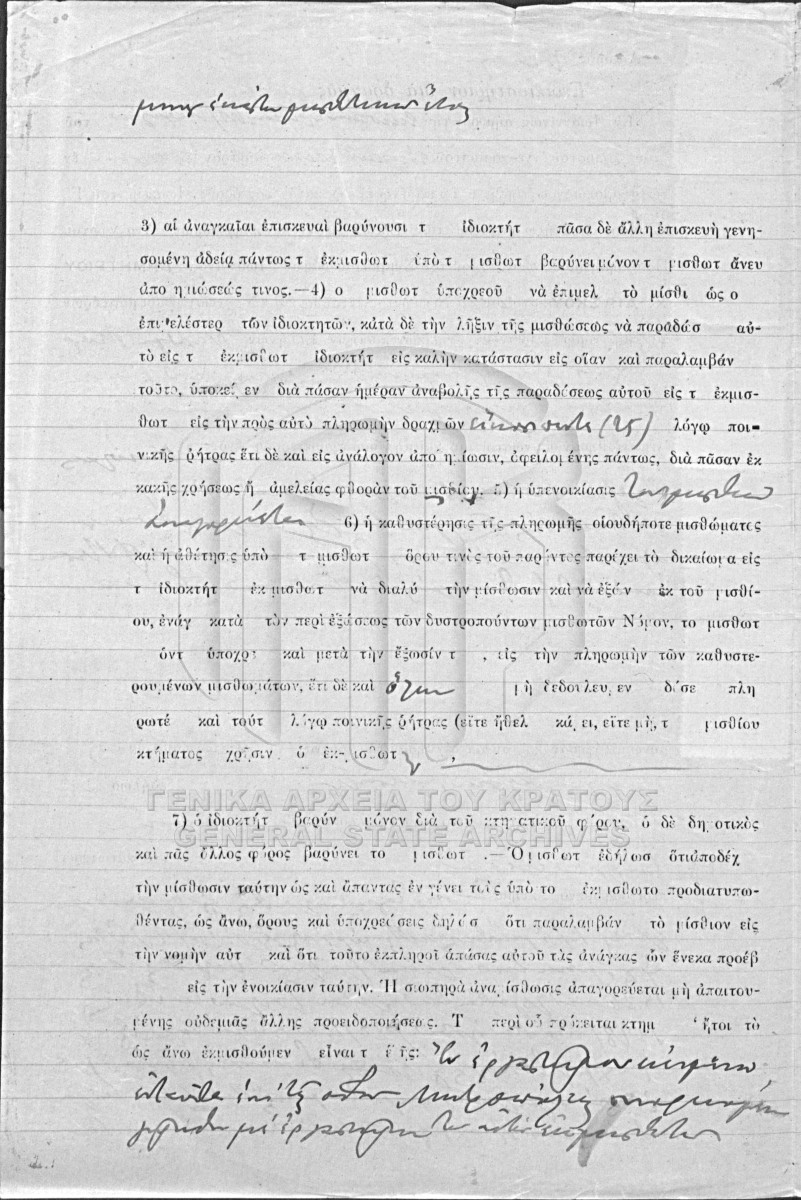 μηνὸς ἑκάστου μισθωτικοῦ ἔτους
3) αἱ ἀναγκαῖαι ἐπισκευαὶ βαρύνουσι τ ἰδιοκτήτ πᾶσα δὲ ἄλλη ἐπισκευὴ γενη-
σομένη ἀδείᾳ πάντως τ ἐκμισθωτ ὑπὸ τ μισθωτ βαρύνει μόνον τ μισθωτ ἄνευ
ἀπο ημιώσεώς τινος.—4) ο μισθωτ ὑποχρεοῦ νὰ ἐπιμελ τὸ μίσθι ὡς ο
ἐπιμελέστερ τῶν ἰδιοκτητῶν, κατὰ δὲ τὴν λῆξιν τῆς μισθώσεως νὰ παραδώσ αὐ-
τὸ εἰς τ ἐκμισθωτ ἰδιοκτήτ εἰς καλὴν κατάστασιν εἰς οἵαν καὶ παραλαμβάν
τοῦτο, ὑποκεί εν διὰ πᾶσαν ἡμέραν ἀναβολῆς τῆς παραδόσεως αὐτοῦ εἰς τ ἐκμισ-
θωτ εἰς τὴν πρὸς αὐτὸ πληρωμὴν δραχμῶν εἴκοσι πέντε (25) λόγῳ ποι-
νικῆς ῥήτρας ἔτι δὲ καὶ εἰς ἀνάλογον ἀπο ημίωσιν, ὀφειλομένης πάντως, διὰ πᾶσαν ἐκ
κακῆς χρήσεως ἢ ἀμελείας φθορὰν τοῦ μισθίου. 5) ἡ ὑπενοικίασις τοῦ μισθίου
ἀπαγορεύεται 6) ἡ καθυστέρησις τῆς πληρωμῆς οἱουδήποτε μισθώματος
καὶ ἡ ἀθέτησις ὑπὸ τ μισθωτ ὅρου τινὸς τοῦ παρόντος παρέχει τὸ δικαίωμα εἰς
τ ἰδιοκτήτ ἐκμισθωτ νὰ διαλύ τὴν μίσθωσιν καὶ νὰ ἐξών ἐκ τοῦ μισθί-
ου, ἐνάγ κατὰ τὸν περὶ ἐξώσεως τῶν δυστροπούντων μισθωτῶν Νόμον, το μισθωτ
όντ ὑποχρε καὶ μετὰ τὴν ἔξωσίν τ , εἰς τὴν πληρωμὴν τῶν καθυστε-
ρουμένων μισθωμάτων, ἔτι δὲ καὶ ὅλων μὴ δεδουλευ εν ὅσε πλη
ρωτέ καὶ τούτ λόγῳ ποινικῆς ῥήτρας (εἴτε ἤθελ κά ει, εἴτε μή, τ μισθίου
κτήματος χρῆσιν ὁ ἐκμισθωτ
7) ὁ ἰδιοκτήτ βαρύν μόνον διὰ τοῦ κτηματικοῦ φόρου, ὁ δὲ δημοτικὸς
καὶ πᾶς ἄλλος φόρος βαρύνει το μισθωτ .—Ὁ μισθωτ ἐδήλωσ ὅτι ἀποδέχ
τὴν μίσθωσιν ταύτην ὡς καὶ ἅπαντας ἐν γένει τοὺς ὑπὸ το ἐκμισθωτο προδιατυπω-
θέντας, ὡς ἄνω, ὅρους καὶ ὑποχρεώσεις δηλώσ ὅτι παραλαμβάν τὸ μίσθιον εἰς
τὴν νομὴν αὐτ καὶ ὅτι τοῦτο ἐκπληροῖ ἁπάσας αὐτοῦ τὰς ἀνάγκας ὧν ἕνεκα προέβ
εἰς τὴν ἐνοικίασιν ταύτην. Ἡ σιωπηρὰ ἀνα ίσθωσις ἀπαγορεύεται μὴ ἀπαιτου-
μένης οὐδεμιᾶς ἄλλης προειδοποιήσεως. Τ περὶ οὗ πρόκειται κτημ ἤτοι τὸ
ὡς ἄνω ἐκμισθούμεν εἶναι τ ἑξῆς: Ἓν ἐργαστήριον κείμενον
ἐνταῦθα ἐπὶ τῆς ὁδοῦ Μητροπόλεως συνορευόμενον
γύρωθεν μὲ ἐργαστήρια τοῦ αὐτοῦ ἐκμισθωτοῦ
ΓΕΝΙΚΑ ΑΡΧΕΙΑ ΤΟΥ ΚΡΑΤΟΥΣ
GENERAL STATE ARCHIVES